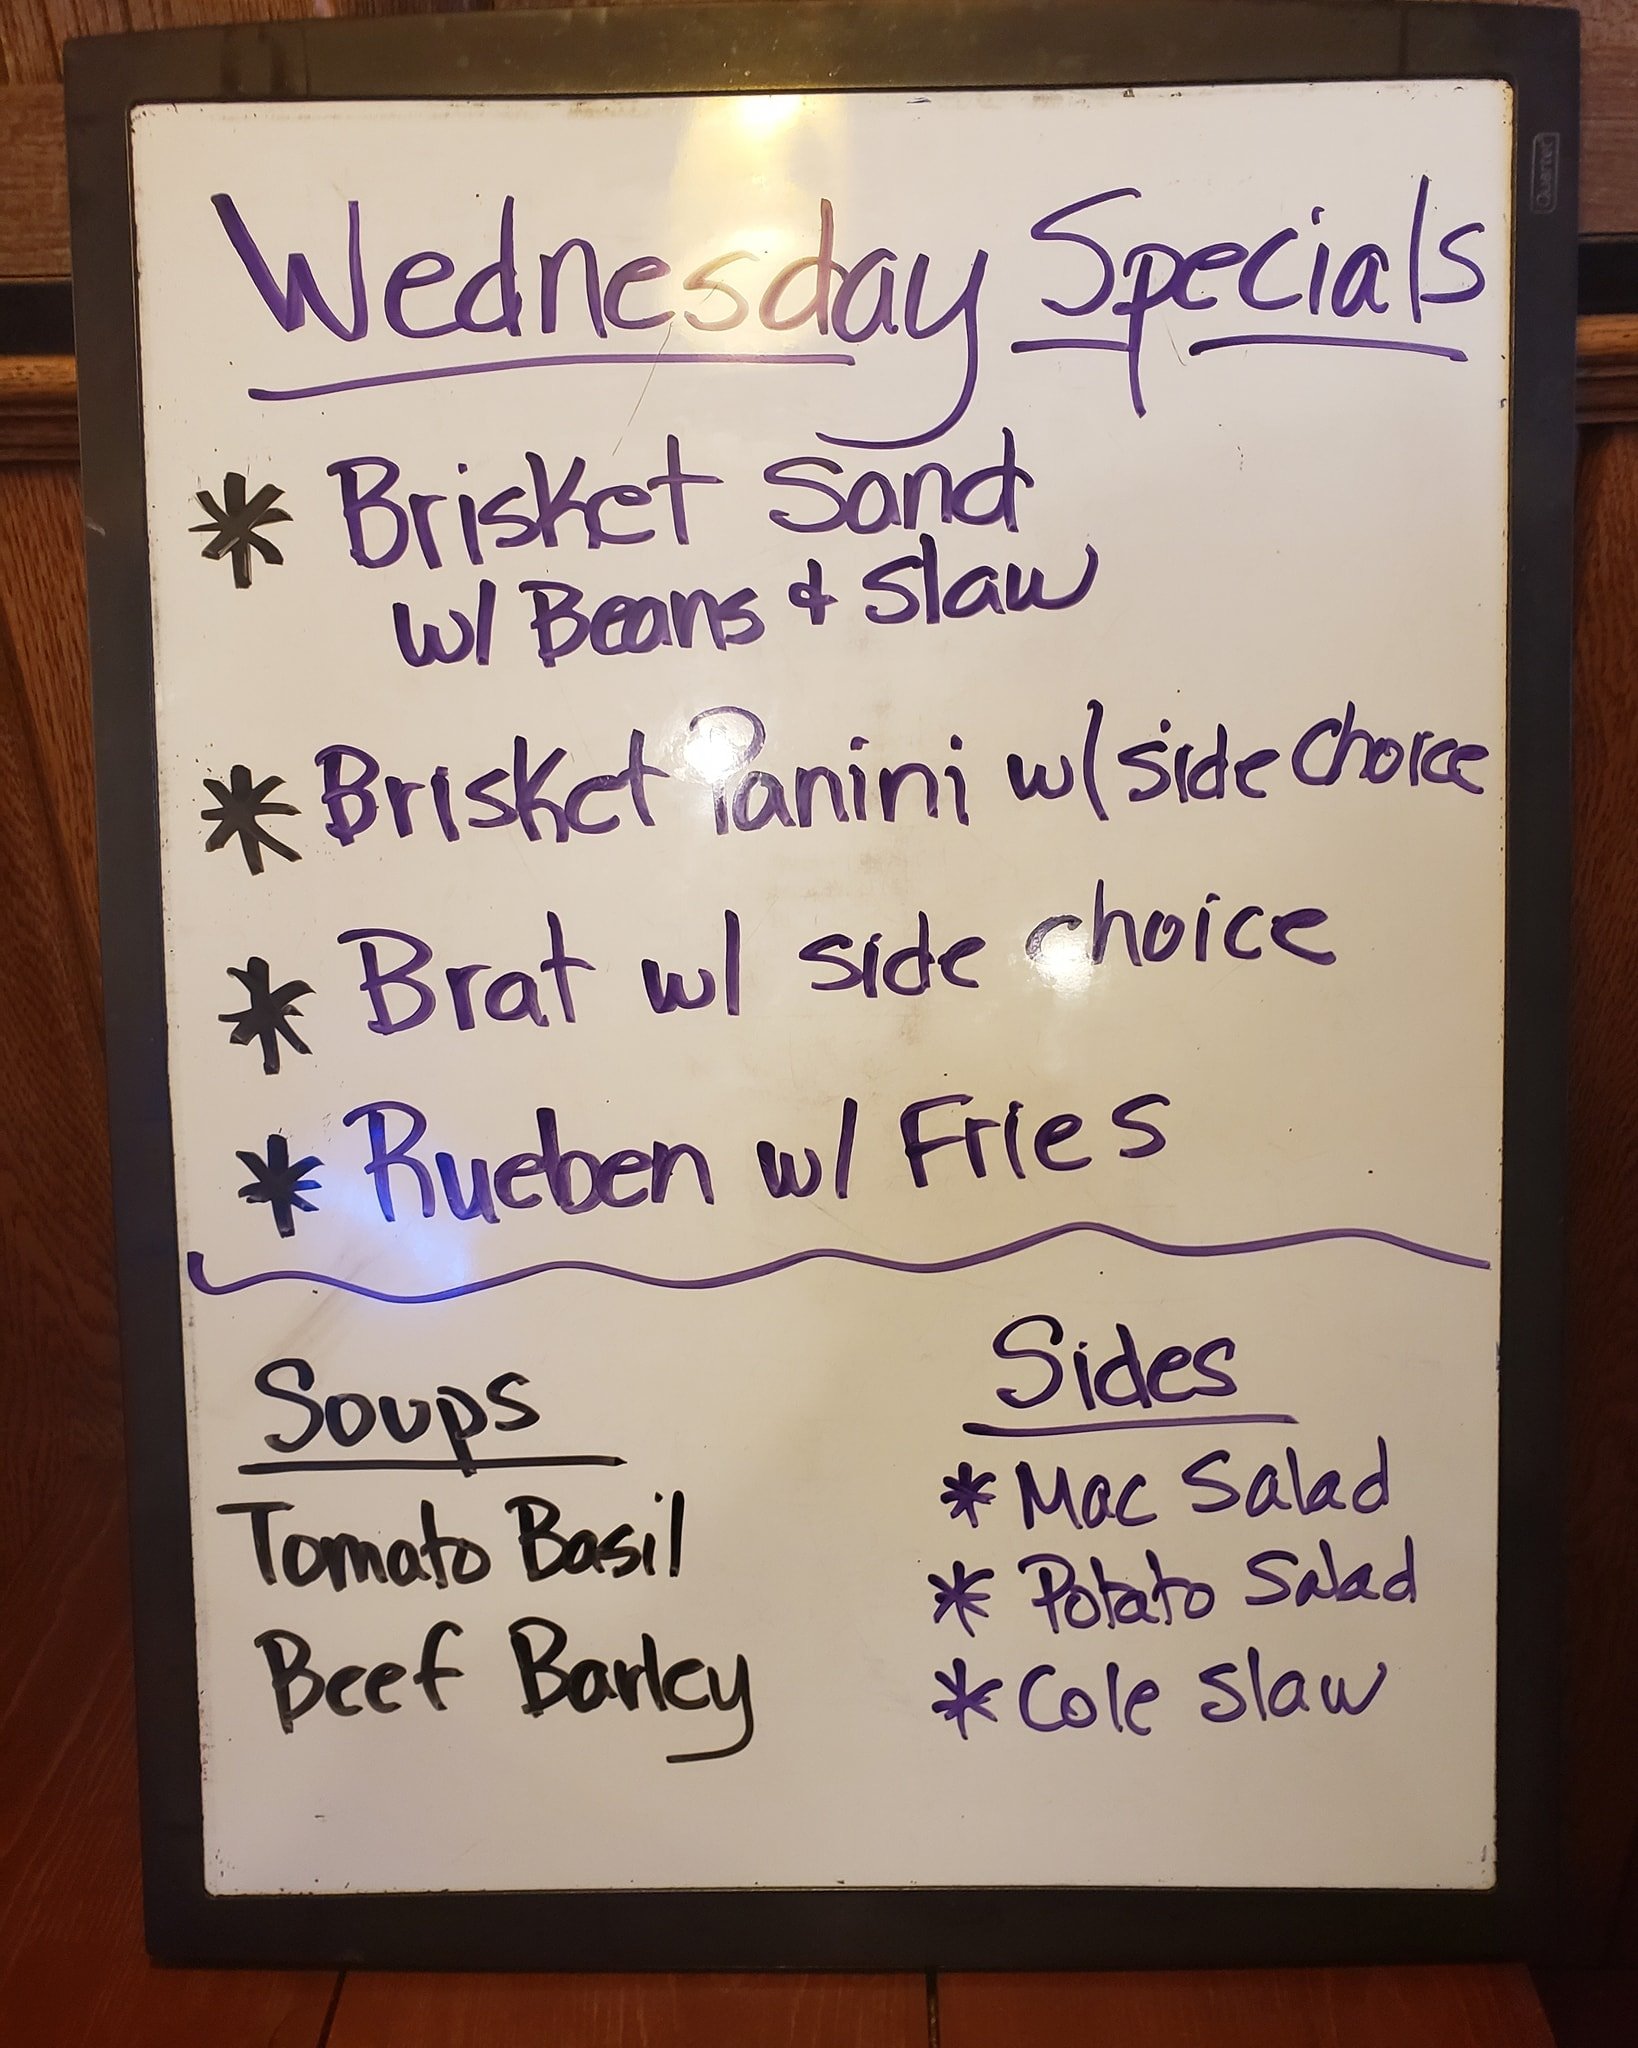 Quartet
Wednesday Specials
* Brisket Sand
w/ Beans & Slaw
* Brisket Panini w/ side choice
* Brat w/ side choice
* Rueben w/ Fries
Soups
Tomato Basil
Beef Barley
Sides
* Mac Salad
* Potato Salad
* Cole Slaw